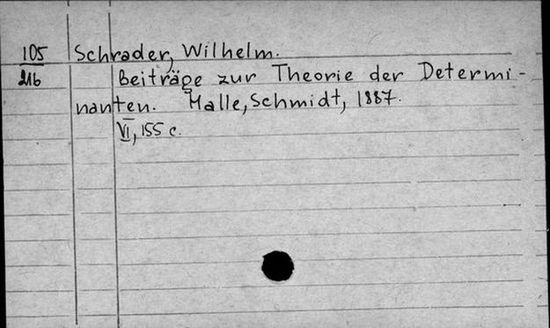 105 Schrader, Wilhelm.
216 Beiträge zur Theorie der Determi-
nanten. Halle, Schmidt, 1887.
VI, 155 c.